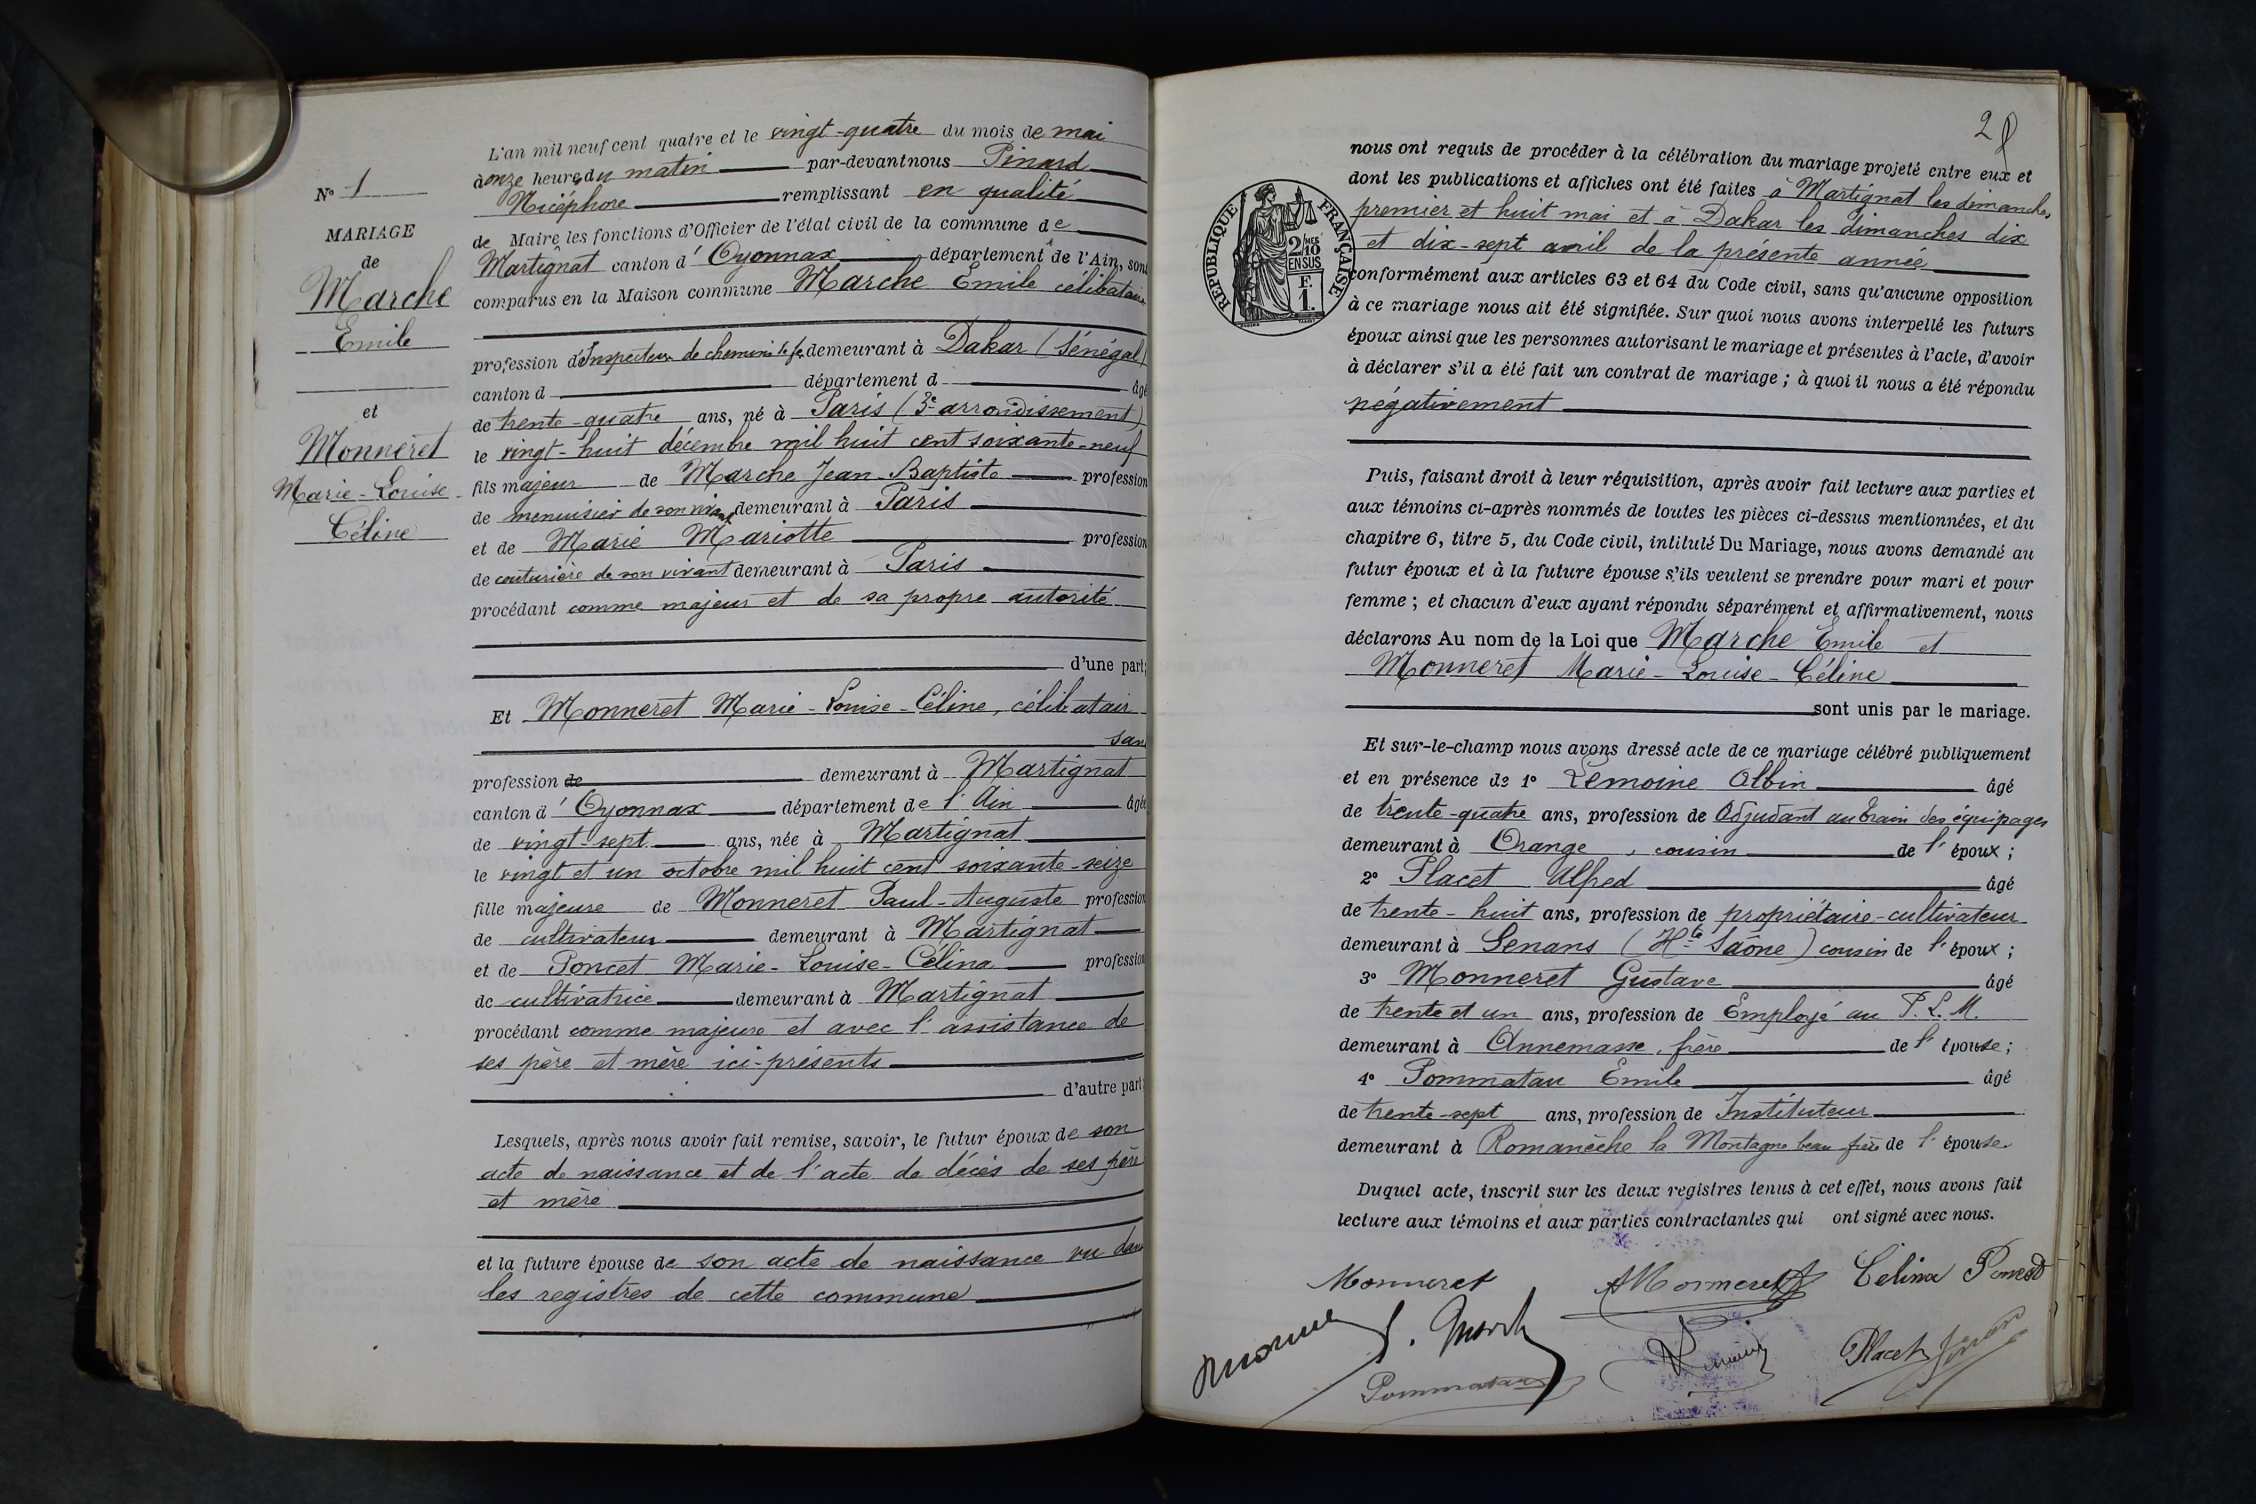 N° 1
MARIAGE
de
Marche
Emile
et
Monneret
Marie-Louise-
Céline
L'an mil neuf cent quatre et le vingt-quatre du mois de mai
à onze heures du matin par-devant nous Pinard
Nicéphore remplissant en qualité
de Maire les fonctions d'Officier de l'état civil de la commune de
Martignat canton d'Oyonnax département de l'Ain, sont
comparus en la Maison commune Marche Emile célibataire
profession d'Inspecteur de chemin de fer demeurant à Dakar (Sénégal)
canton d département d âgé
de trente-quatre ans, né à Paris (3e arrondissement)
le vingt-huit décembre mil huit cent soixante-neuf
fils majeur de Marche Jean-Baptiste profession
de menuisier de son vivant demeurant à Paris
et de Marie Mariotte profession
de couturière de son vivant demeurant à Paris
procédant comme majeur et de sa propre autorité
d'une part;
Et Monneret Marie-Louise-Céline, célibatair
san
profession de demeurant à Martignat
canton d'Oyonnax département de l'Ain âgée
de vingt-sept ans, née à Martignat
le vingt et un octobre mil huit cent soixante-seize
fille majeure de Monneret Paul-Auguste profession
de cultivateur demeurant à Martignat
et de Poncet Marie-Louise-Célina profession
de cultivatrice demeurant à Martignat
procédant comme majeure et avec l'assistance de
ses père et mère ici-présents
d'autre part;
Lesquels, après nous avoir fait remise, savoir, le futur époux de son
acte de naissance et de l'acte de décès de ses père
et mère
et la future épouse de son acte de naissance vu dans
les registres de cette commune
2
nous ont requis de procéder à la célébration du mariage projeté entre eux et
dont les publications et affiches ont été faites à Martignat les dimanches
premier et huit mai et à Dakar les dimanches dix
et dix-sept avril de la présente année
RÉPUBLIQUE FRANÇAISE
2 MES
10
EN SUS
F.
1.
conformément aux articles 63 et 64 du Code civil, sans qu'aucune opposition
à ce mariage nous ait été signifiée. Sur quoi nous avons interpellé les futurs
époux ainsi que les personnes autorisant le mariage et présentes à l'acte, d'avoir
à déclarer s'il a été fait un contrat de mariage ; à quoi il nous a été répondu
négativement
Puis, faisant droit à leur réquisition, après avoir fait lecture aux parties et
aux témoins ci-après nommés de toutes les pièces ci-dessus mentionnées, et du
chapitre 6, titre 5, du Code civil, intitulé Du Mariage, nous avons demandé au
futur époux et à la future épouse s'ils veulent se prendre pour mari et pour
femme ; et chacun d'eux ayant répondu séparément et affirmativement, nous
déclarons Au nom de la Loi que Marche Emile et
Monneret Marie-Louise-Céline
sont unis par le mariage.
Et sur-le-champ nous avons dressé acte de ce mariage célébré publiquement
et en présence de 1° Lemoine Albin âgé
de trente-quatre ans, profession de Adjudant au train des équipages
demeurant à Orange, cousin de l'époux ;
2° Placet Alfred âgé
de trente-huit ans, profession de propriétaire-cultivateur
demeurant à Senans (Hte Saône) cousin de l'époux ;
3° Monneret Gustave âgé
de trente et un ans, profession de Employé au P. L. M.
demeurant à Annemasse, frère de l'épouse ;
4° Pommatau Emile âgé
de trente-sept ans, profession de Instituteur
demeurant à Romanèche la Montagne beau frère de l'épouse.
Duquel acte, inscrit sur les deux registres tenus à cet effet, nous avons fait
lecture aux témoins et aux parties contractantes qui ont signé avec nous.
Monneret
A Monneret
Célina Poncet
E. March
Pommatau
Placet